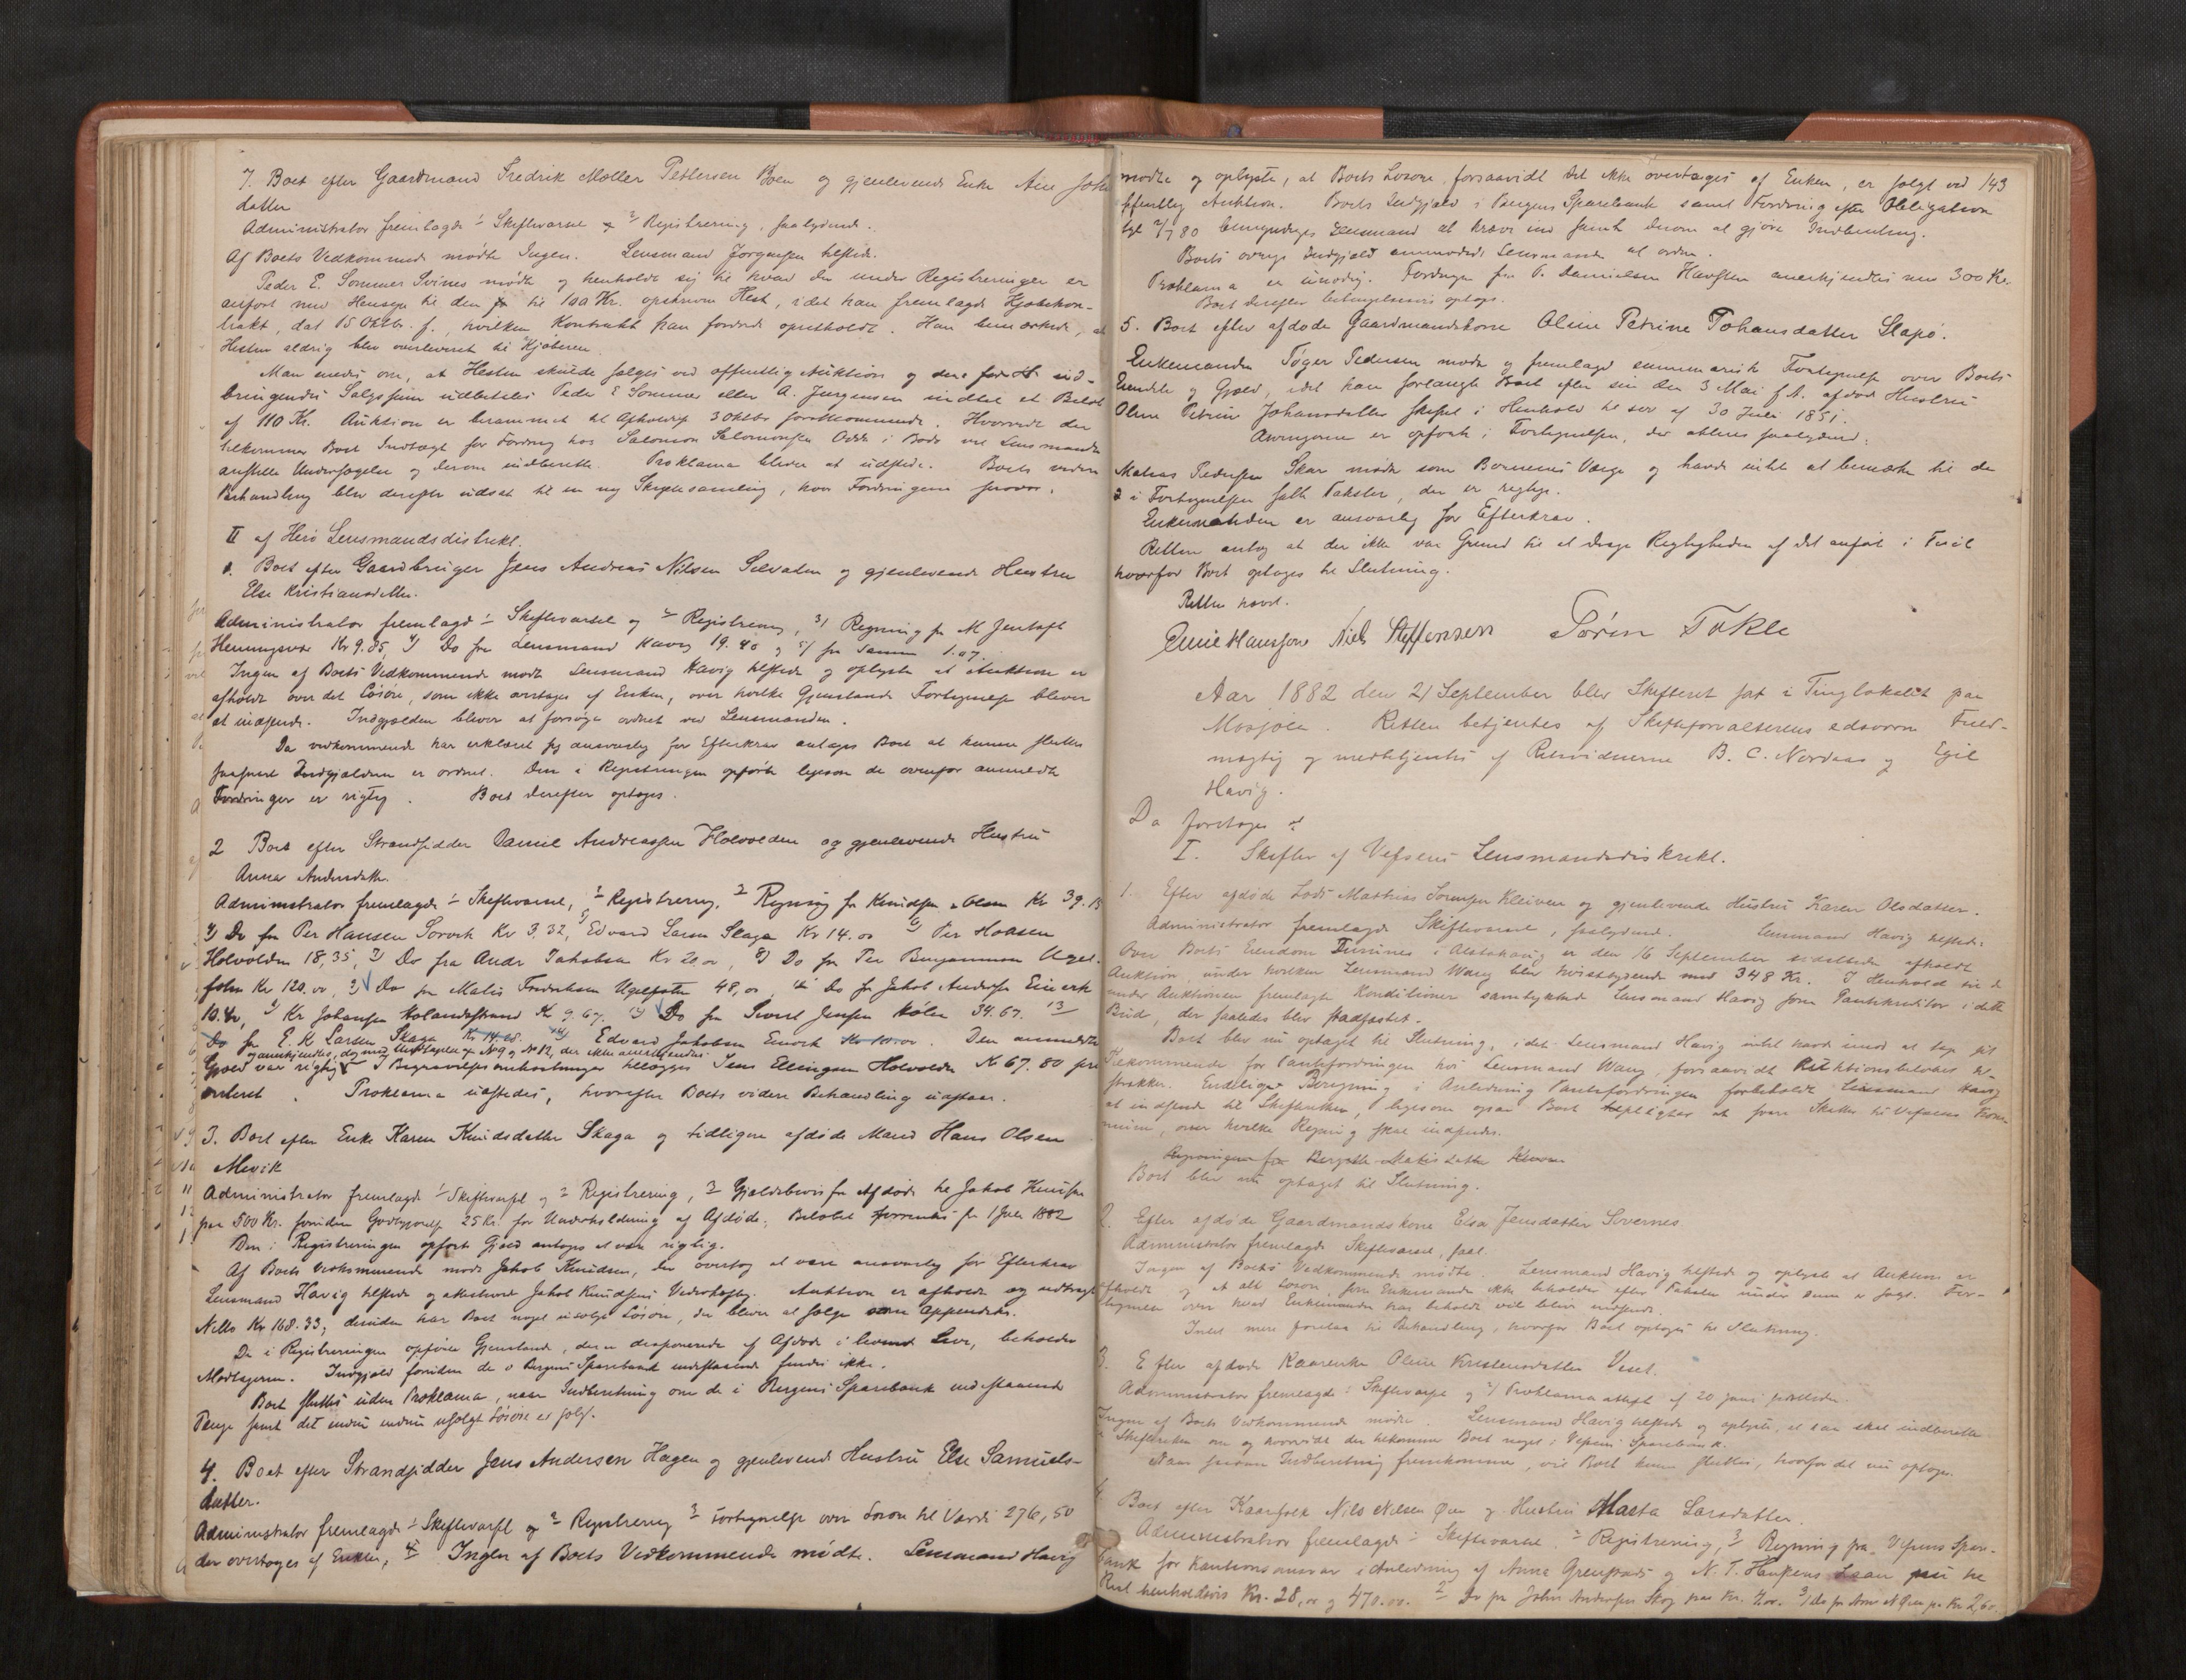 7. Boet efter Gaardmand Fredrik Møller Pettersen Boen og gjenlevende Enke Ane Joha
datter
Administrator fremlagde 1/ Skiftevarsel og 2/ Registrering, saalydende.
Af Boets Vedkommende mødte Ingen. Lensmand Jørgensen tilstede.
Peder E. Sommer Svines mødte og henholdt sig til hvad der under Registreringen er
anført med Hensyn til den til 100 Kr. opskrevne Hest, idet han fremlagde Kjøbekon-
trakt, dat 15 Oktbr. f. , hvilken Kontrakt han fordrede opretholdt. Han bemærkede, at
Hesten aldrig blev overleveret til Kjøberen.
Man enedes om, at Hesten skulde sælges ved offentlig Auktion og den for H. ud-
bringendes Salgssum udbetales Peder E Sommer eller A. Jørgensen indtil et Beløb
af 110 Kr. Auktion er berammet til Afholdelse 3 Oktbr førstkommende. Hvorvidt der
tilkommer Boet Indtægt for Fordring hos Salomon Salomonsen Odde i Bodø vil Lensmanden
anstille Undersøgelse og derom indberette. Proklama bliver at udstede. Boets videre
Behandling blev derefter udsat til en ny Skiftesamling, hvor Fordringerne prøves.
II af Herø Lensmandsdistrikt.
1. Boet efter Gaardbruger Jens Andreas Nilsen Selvaden og gjenlevende Hustru
Else Kristiansdatter.
Administrator fremlagde 1/ Skiftevarsel og 2/ Registrering, 3/ Regning fra M Jentoft
Henningsvær Kr 9.85, 4/ Do fra Lensmand Havig 19.40 og 5/ fra Samme 1.07.
Ingen af Boets Vedkommende mødte Lensmand Havig tilstede og oplyste at Auktion er
afholdt over det Løsøre, som ikke overtages af Enken, over hvilke Gjenstande Fortegnelse bliver
at indsende. Indgjælden bliver at forsøge ordnet ved Lensmanden.
Da vedkommende har erklæret sig ansvarlig for Efterkrav antages Boet at kunne sluttes
saasnart Indgjælden er ordnet. Den i Registreringen opførte ligesom de ovenfor anmeldte
Fordringer er rigtig. Boet derefter optoges.
2 Boet efter Strandsidder Daniel Andreassen Holvolden og gjenlevende Hustru
Anna Andersdatter.
Administrator fremlagde 1/ Skiftevarsel, 2/ Registrering, 3/ Regning fra Knudsen & Olsen Kr 39.15
4/ Do fra Per Hansen Sørvik Kr 3.32, 5/ Edvard Larsen Skaga Kr 14.00 6/ Per Hansen
Holvolden 18,35, 7/ Do fra Andr Jakobsen Kr 20,00, 8/ Do fra Per Benjaminsen Ugel-
Kr 120.00, 9/ Do fra Matis Fredriksen 48,00, 10/ Do fra Jakob Andersen
10.40, 11/ Kr Johansen Kr 9.67. 12/ Do fra Sivert Jensen 34.67. 13/
Do fra E. K Larsen Skaga Kr 14.00. 14/ Edvard Jakobsen Kr 10.00. Den anmeldte
og anerkjendtes, dog med Undtagelse af No 9 og No 12, der ikke anerkjendtes
Gjæld var rigtig. I Begravelsesomkostninger tillægges Jens Ellingsen Holvolden Kr 67.80
Proklama udstedes, hvorefter Boets videre Behandling udstaar.
3. Boet efter Enke Karen Knudsdatter Skaga og tidligere afdøde Mand Hans Olsen
Mevik
Administrator fremlagde 1/ Skiftevarsel og 2/ Registrering, 3/ Gjældsbevis fra Afdøde til Jakob Knudsen
paa 500 Kr. foruden Godtgjørelse 25 Kr. for Underholdning af Afdøde, Beløbet forrentes fra 1 Juli 1882
Den i Registreringen opførte Gjæld antoges at være rigtig.
Af Boets Vedkommende mødte Jakob Knudsen, der overtog at være ansvarlig for Efterkrav
Lensmand Havig tilstede og attesterede Jakob Knudsens Vederhæftighed. Auktion er afholdt og udbragt
Netto Kr 168.33; desuden har Boet noget usolgt Løsøre, der bliver at sælge som Appendix.
De i Registreringen opførte Gjenstande, der er disponerede af Afdøde i levende Live, beholder
Modtageren. Indgjæld foruden de i Bergens Sparebank indestaaende findes ikke.
Boet sluttes uden Proklama, naar Indberetning om de i Bergens Sparebank indestaaende
Penge samt det endnu usolgte Løsøre er solgt.
4. Boet efter Strandsidder Jens Andersen Hagen og gjenlevende Hustru Else Samuels-
datter.
Administrator fremlagde 1/ Skiftevarsel og 2/ Registrering 3/ Fortegnelse over Løsøre til Værdi 276,50
der overtages af Enken, 4/ Ingen af Boets Vedkommende mødte. Lensmand Havig
mødte og oplyste, at Boets Løsøre, forsaavidt det ikke overtages af Enken, er solgt ved 143
offentlig Auktion. Boets Indgjæld i Bergens Sparebank samt Fordring efter Obligation
bemyndiges Lensmand at kræve ind samt derom at gjøre Indberetning.
Boets øvrige Indgjæld anmodedes Lensmanden at ordne.
Proklama er unødig. Fordringen fra P. Danielsen Havsten anerkjendtes med 300 Kr.
Boet derefter betingelsesvis optoges.
5. Boet efter afdøde Gaardmandskone Oline Petrine Johansdatter Slapø.
Enkemanden Tøger Pedersen mødte og fremlagde summarisk Fortegnelse over Boets
Eiendele og Gjæld, idet han forlangte Boet efter sin den 3 Mai f. A. afdøde Hustru
Oline Petrine Johansdatter skiftet i Henhold til Lov af 30 Juli 1851.
Arvingerne er opført i Fortegnelsen, der attesteres saalydende:
Matias Pedersen Skar mødte som Børnenes Værge og havde intet at bemærke til de
i Fortegnelsen satte Takster, der er rigtige.
Enkemanden er ansvarlig for Efterkrav.
Retten antog at der ikke var Grund til at drage Rigtigheden af det anførte i Tvil
hvorfor Boet optoges til Slutning.
Retten hævet.
Emil Hansson Niels Steffensen Søren Tokle
Aar 1882 den 21 September blev Skifteret sat i Tinglokalet paa
Mosjøen. Retten betjentes af Skifteforvalterens edsvorne Fuld-
mægtig og medbetjentes af Retsvidnerne B. C. Nordaas og Egil
Havig.
Da foretoges
I. Skifter af Vefsens Lensmandsdistrikt.
1. Efter afdøde Lods Mathias Sørensen Kleiven og gjenlevende Hustru Karen Olsdatter.
Administrator fremlagde Skiftevarsel, saalydende. Lensmand Havig tilstede.
Over Boets Eiendom i Alstahaug er den 16 September sidstleden afholdt
Auktion, under hvilken Lensmand Wang blev høistbydende med 348 Kr. I Henhold til de
under Auktionen fremlagte Konditioner samtykkede Lensmand Havig som Pantekreditor i dette
Bud, der saaledes blev stadfæstet.
Boet blev nu optaget til Slutning, idet Lensmand Havig intet havde imod at tage sit
Tilkommende for Pantefordringen hos Lensmand Wang, forsaavidt Auktionsbeløbet til-
strækker. Endeligt Beregning i Anledning Pantefordringen forbeholdt Lensmand Havig
at indsende til Skifteretten, ligesom ogsaa Boet tilpligtes at svare Skatter til Vefsens
over hvilke Regning skal indsendes.
Regningen fra Bergitte Matisdatter
Boet blev nu optaget til Slutning.
2. Efter afdøde Gaardmandskone Elsa Jensdatter Sovernes.
Administrator fremlagde Skiftevarsel, saal.
Ingen af Boets Vedkommende mødte. Lensmand Havig tilstede og oplyste at Auktion er
afholdt og at alt Løsøre, som Enkemanden ikke beholder efter Taksten under samme er solgt. For-
tegnelse over hvad Enkemanden har beholdt vil blive indsendt.
Intet mere forelaa til Behandling, hvorfor Boet optoges til Slutning.
3. Efter afdøde Kaarenke Oline Kristensdatter Veset.
Administrator fremlagde 1/ Skiftevarsel og 2/ Proklamaattest af 20 Juni sidstleden.
Ingen af Boets Vedkommende mødte. Lensmand Havig tilstede og oplyste, at han skal indberette
til Skifteretten om og hvorvidt der tilkommer Boet noget i Vefsens Sparebank.
Naar saadan Indberetning fremkommer, vil Boet kunne sluttes, hvorfor det nu optoges.
4. Boet efter Kaarfolk Nils Nilsen Øen og Hustru Marta Larsdatter.
Administrator fremlagde 1/ Skiftevarsel. 2/ Registrering, 3/ Regning fra Vefsens Spare-
bank for Kautionsansvar i Anledning af Anna og N. T. Hansens Laan
Rest henholdsvis Kr. 28,00 og 470.00. 2/ Do fra John Andersen Skog paa Kr. 4,00. 3/ Do fra N Øen paa Kr 2,60.